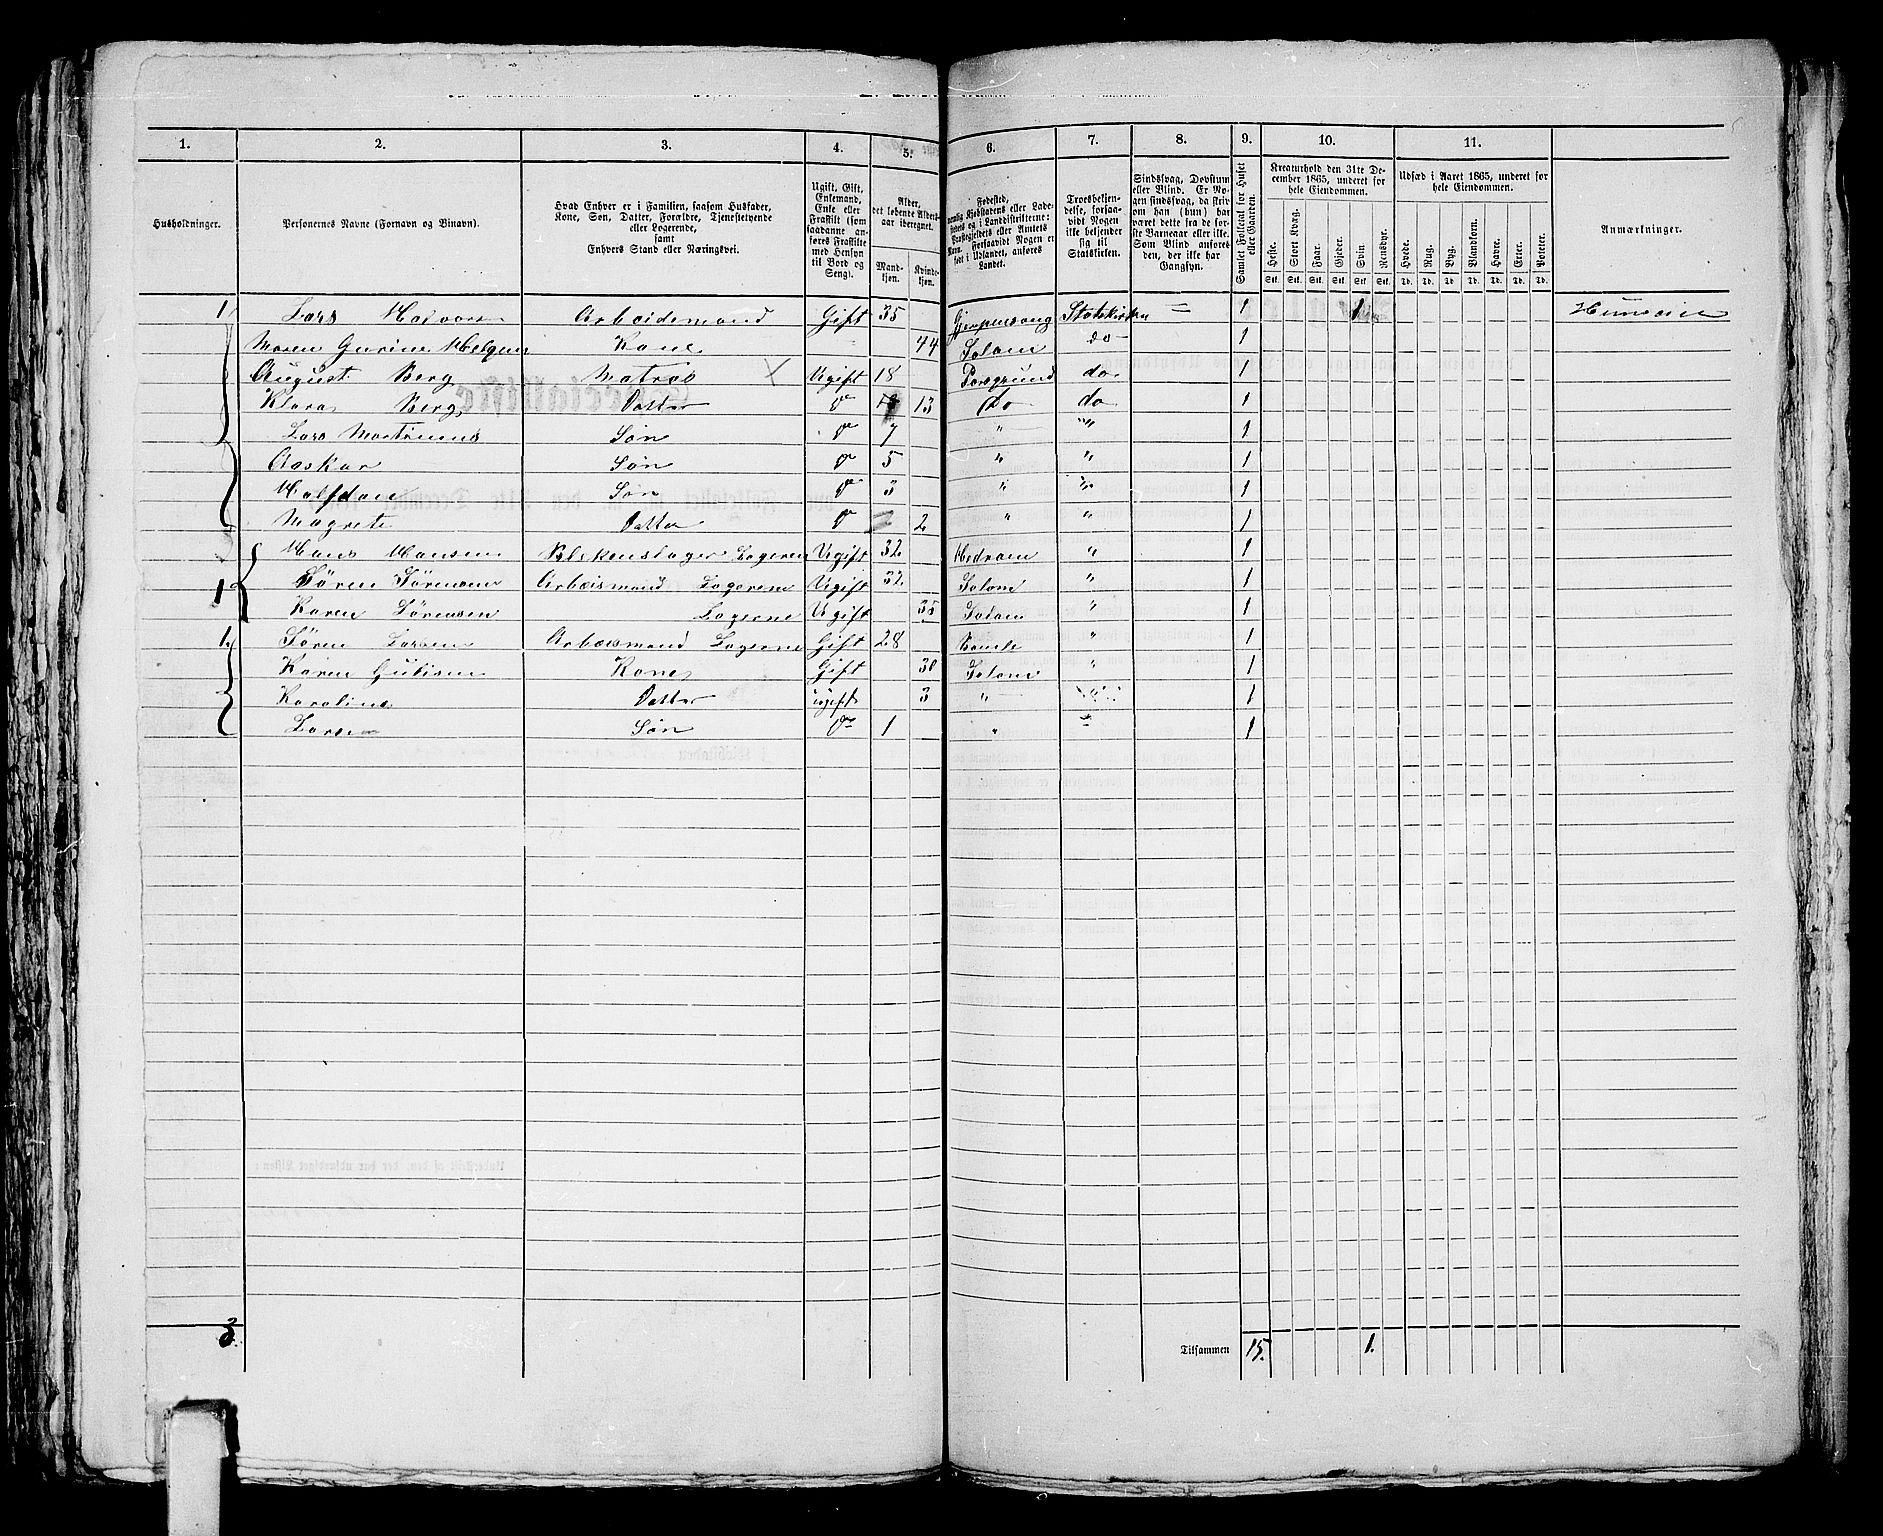 1. 2. 3. 4. 5. 6. 7. 8. 9. 10. 11.
Husholdninger.
Personernes Navne (Fornavn og Binavn).
Hvad Enhver er i Familien, saasom Husfader,
Kone, Søn, Datter, Forældre, Tjenestetyende
eller Logerende,
samt
Enhvers Stand eller Næringsvei.
Ugift, Gift,
Enkemand,
Enke eller
Fraskilt (som
saadanne an-
føres Fraskilte
med Hensyn
til Bord og
Seng).
Alder,
det løbende Alders-
aar iberegnet.
Mand-
kjøn.
Kvinde-
kjøn.
Fødested,
nemlig Kjøbstadens eller Lade-
stedets og i Landdistrikterne:
Præstegjeldets eller Amtets
Navn. Forsaavidt Nogen er
født i Udlandet, anføres
Landet.
Troesbekjen-
delse, forsaa-
vidt Nogen
ikke bekjender
sig til
Statskirken.
Sindssvag, Døvstum
eller Blind. Er No-
gen sindssvag, da skriv
om han (hun) har
været dette fra de før-
ste Barneaar eller ikke.
Som Blind anføres
den, der ikke har
Gangsyn.
Samlet Folketal for Huset
eller Gaarden.
Kreaturhold den 31te De-
cember 1865, underet for
hele Eiendommen.
Heste. Stort Kvæg. Faar. Gjeder. Svin. Rensdyr.
Stk. Stk. Stk. Stk. Stk. Stk.
Udsæd i Aaret 1865, underet for
hele Eiendommen.
Hvede. Rug. Byg. Blandkorn. Havre. Erter. Poteter.
Td. Td. Td. Td. Td. Td. Td.
Anmærkninger.
1 Lars Halvors Arbeidsmand Gift 35 Statskirken = 1 1
Maren Gurine Kone 44 Solom do 1
August Berg Matros X Ugift 18 Porsgrund do 1
Klara Berg Datter do 13 do do 1
Lars Martinius Søn do 7 " " 1
Aaskar Søn do 5 " " 1
Halfdan Søn do 3 " " 1
Magrete Datter do 2 " " 1
Hans Hansen Ugift 32 " 1
1 Søren Sørensen Arbeismand Logerene Ugift 32 Solom " 1
Karen Sørensen Logerne Ugift 35 Solom " 1
1 Søren Larsen Arbeismand Logerne Gift 28 Bamle " 1
Karen Kone Gift 30 Solom " 1
Karoline Datter ugift 3 " " 1
Laren Søn do 1 " " 1
3. Tilsammen 15. 1.